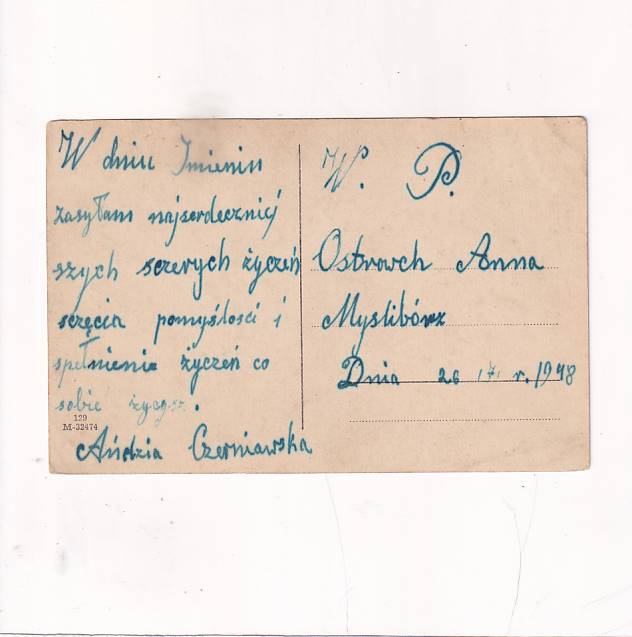 W dniu Imienin
zasyłam najserdeczniej
szych sczerych życzeń
sczęcia pomyślosci i
spełnienia życzeń co
sobie życzysz.
129
M-32474
Andzia Czerniawska
W. P.
Ostrowch Anna
Myslibórz
Dnia 26 r. 1948